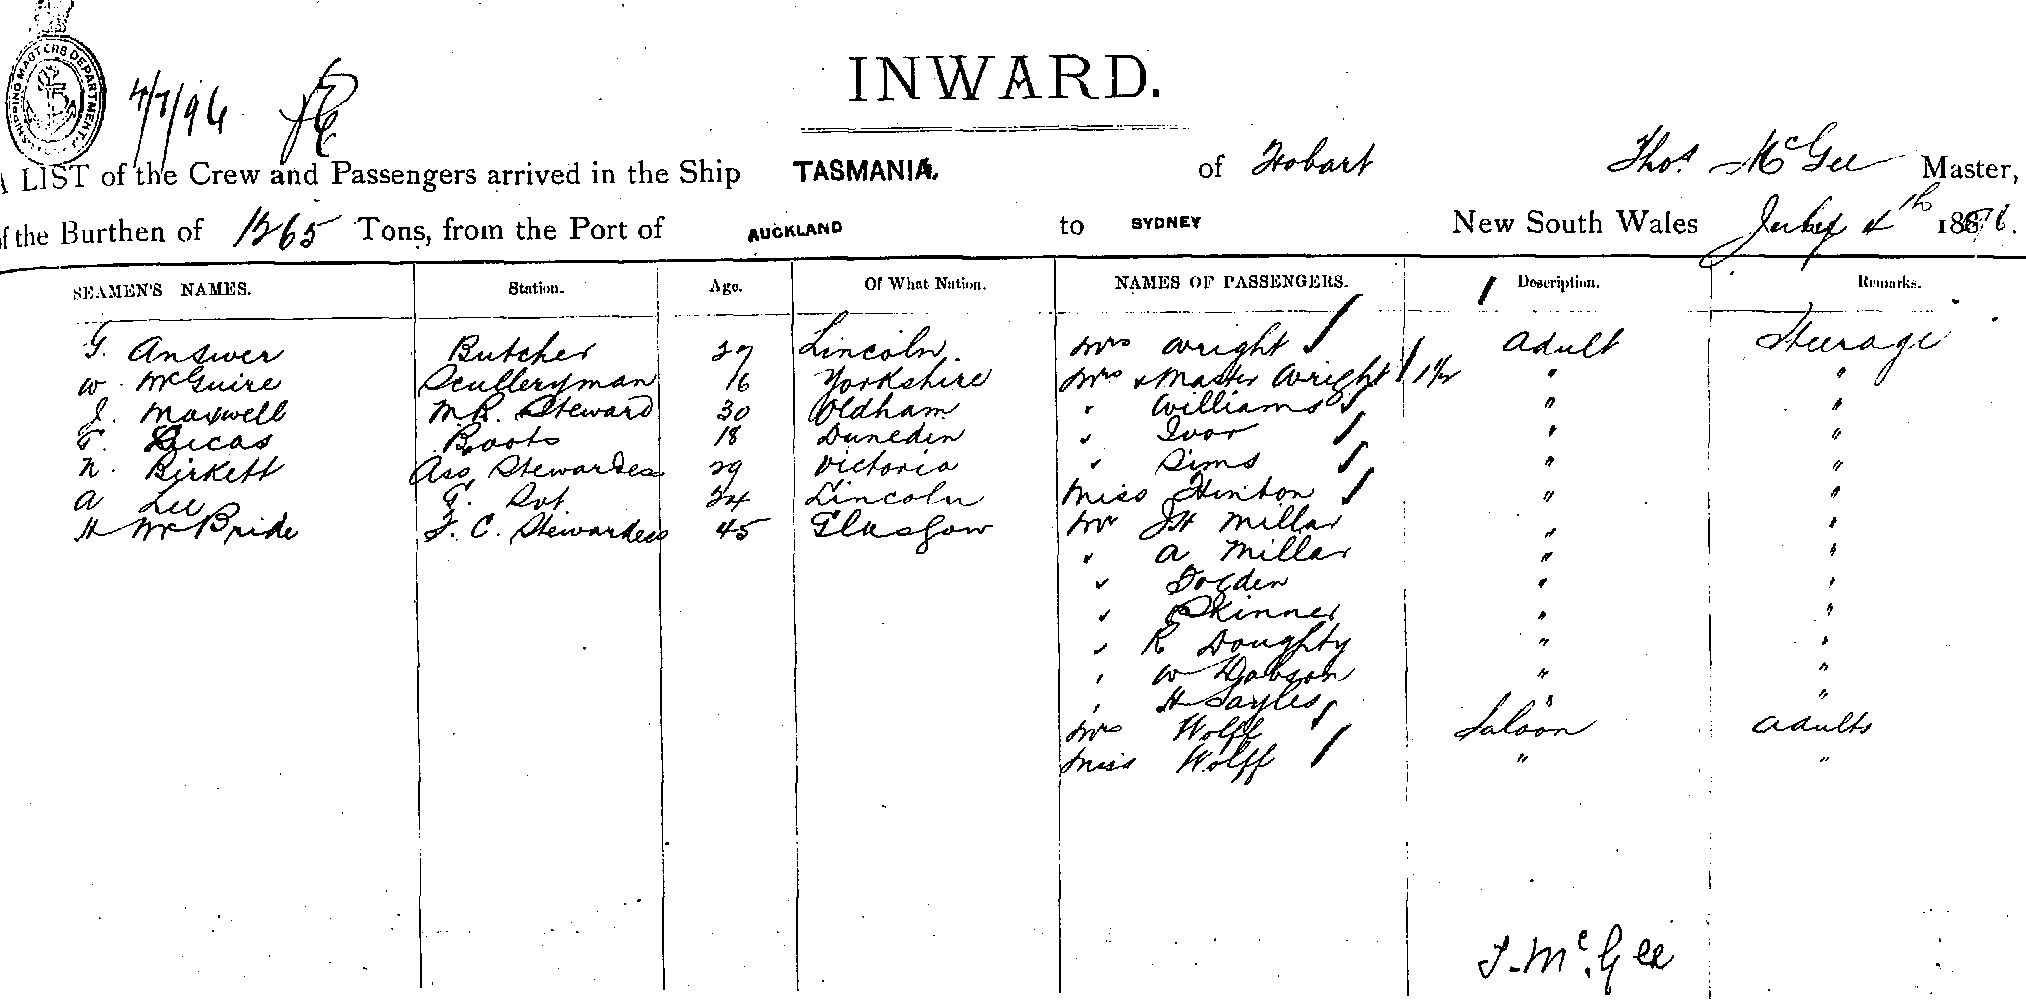 SHIPPING MASTERS DEPARTMENT
4/7/96
INWARD.
A LIST of the Crew and Passengers arrived in the Ship TASMANIA. of Hobart Thos. McGee Master,
of the Burthen of 1265 Tons, from the Port of AUCKLAND to SYDNEY New South Wales July 4th 1896.
SEAMEN'S NAMES. Station. Age. Of What Nation. NAMES OF PASSENGERS. Description. Remarks.
G. Answer Butcher 27 Lincoln. Mrs Wright Adult Steerage
W. McGuire Sculleryman 16 Yorkshire Mrs & Master Wright 1½ " "
J. Maxwell M.R. Steward 30 Oldham " Williams " "
F. Lucas Boots 18 Dunedin " Ivor " "
N. Birkett Ass. Stewardess 29 Victoria " Sims " "
A Lee 24 Lincoln Miss Hinton " "
H McBride F. C. Stewardess 45 Glasgow Mr JH Millar " "
" A Millar " "
" "  "
" Skinner " "
" R Doughty " "
" W Dobson " "
" H Sayles " "
Mrs Wolff Saloon Adults
Miss Wolff " "
T. McGee